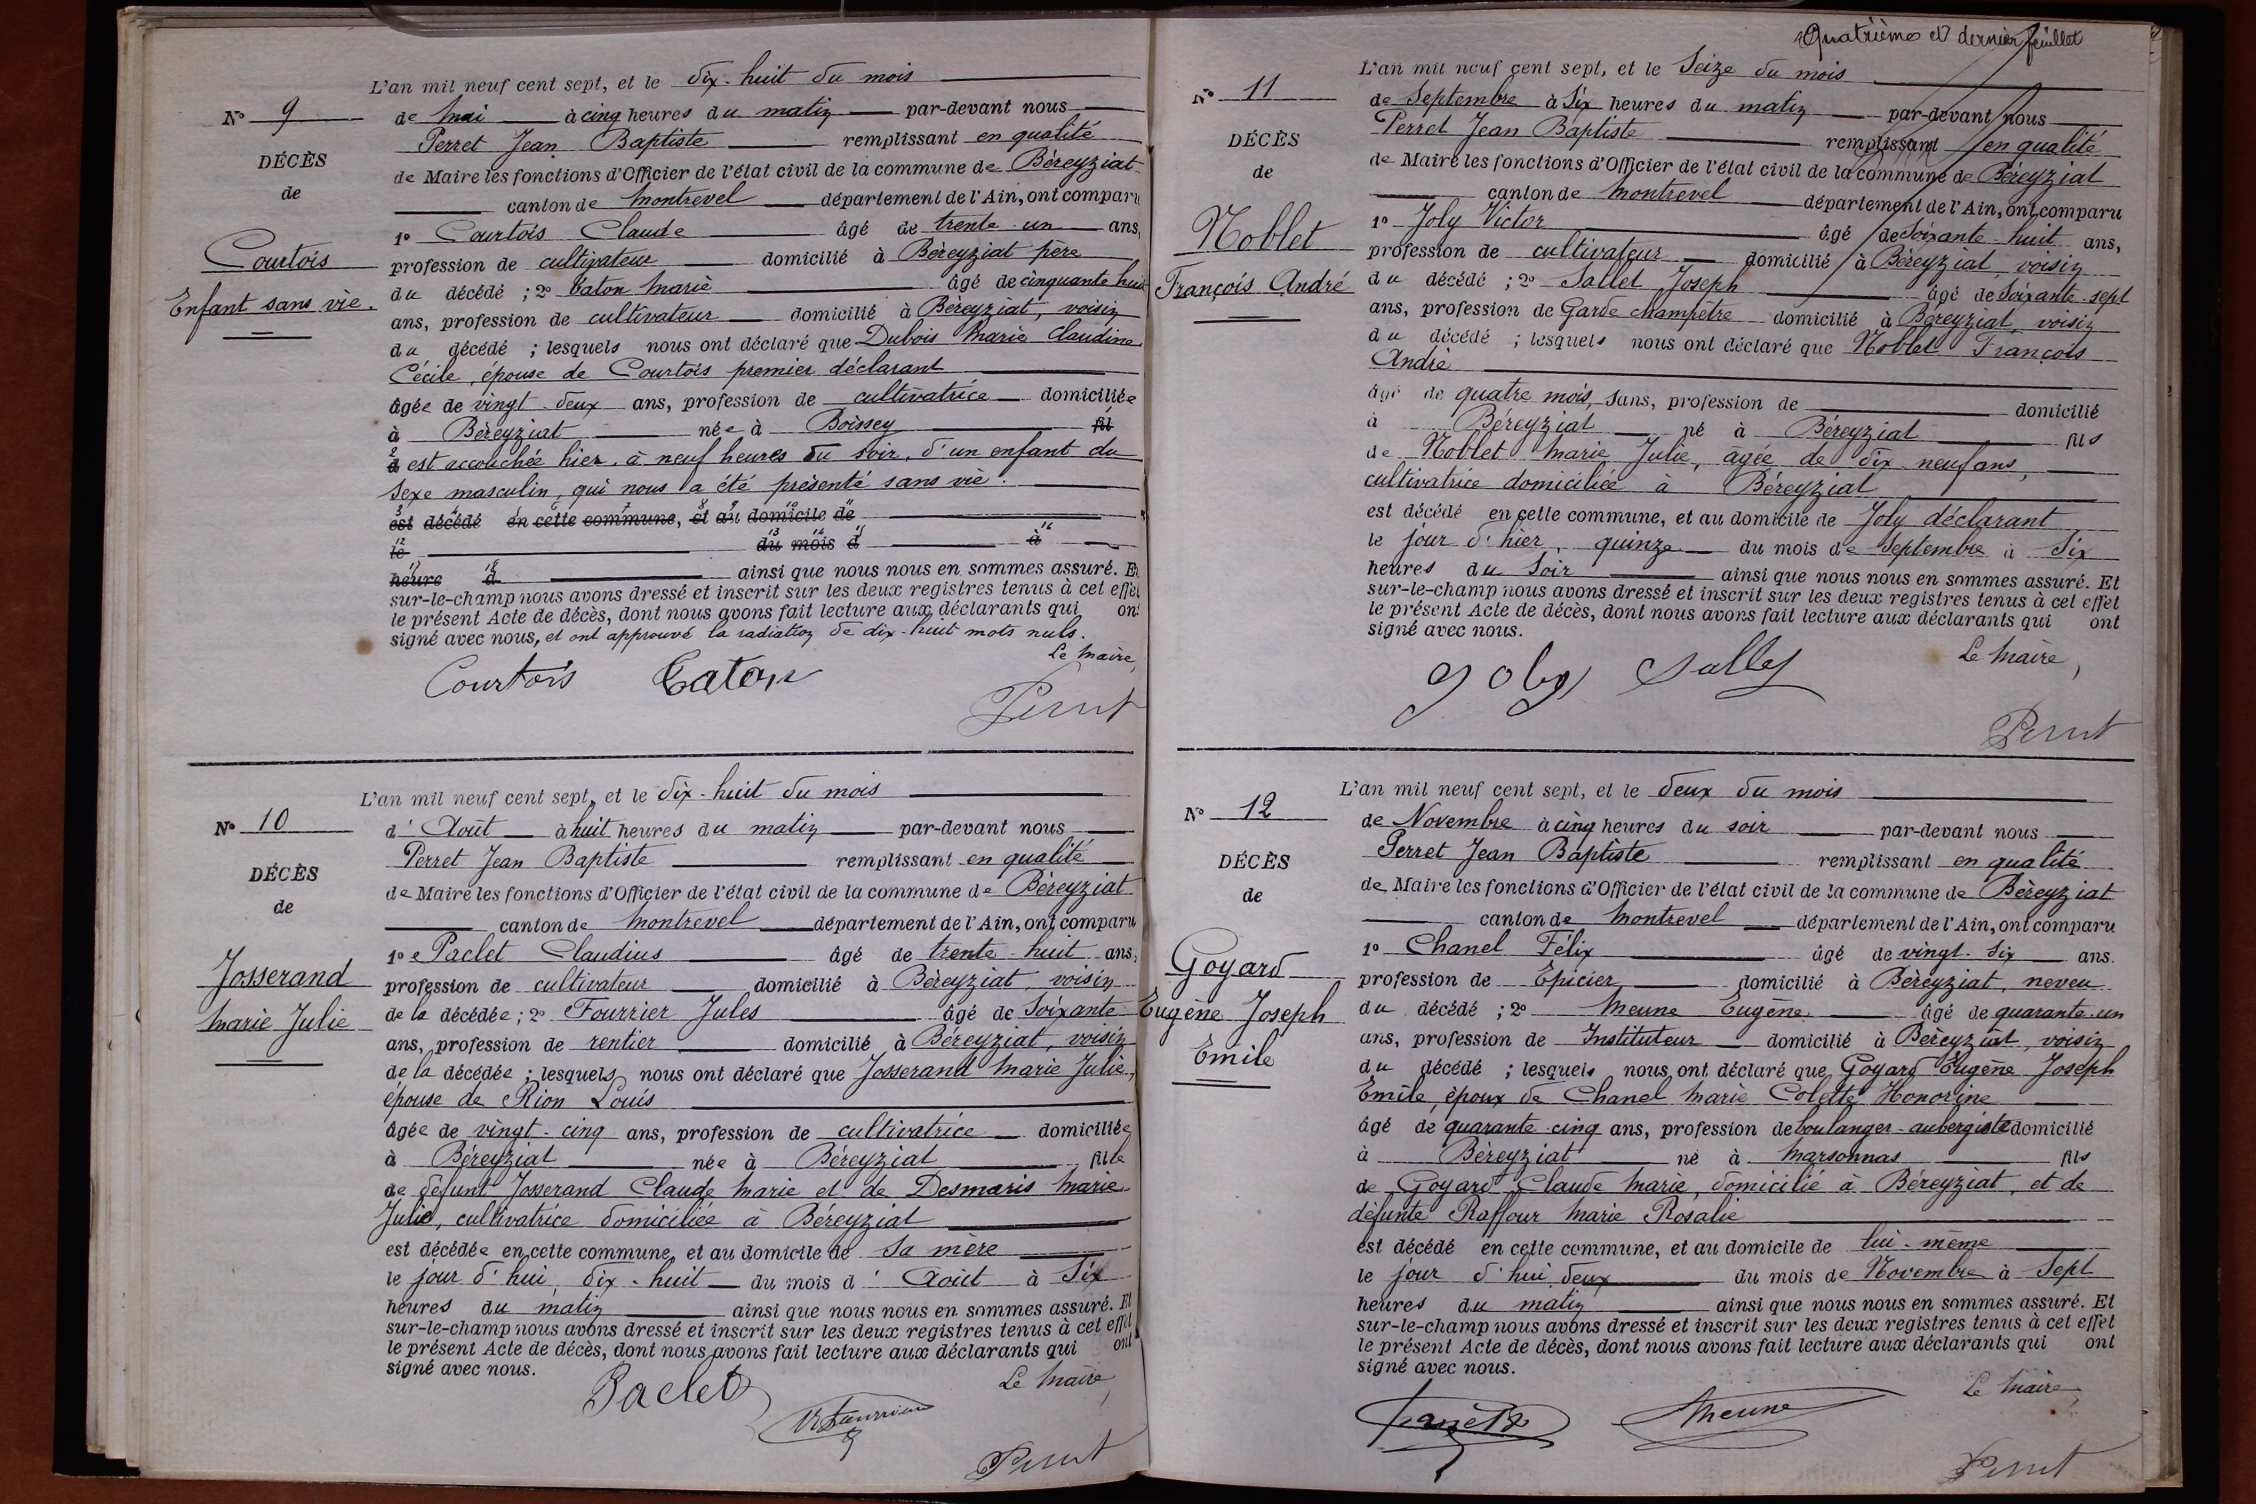 L'an mil neuf cent sept, et le dix-huit du mois
N° 9
de Mai à cinq heures du matin par-devant nous
Perret Jean Baptiste remplissant en qualité
DÉCÈS
de Maire les fonctions d'Officier de l'état civil de la commune de Béreyziat
de
canton de Montrevel département de l'Ain, ont comparu
1° Courtois Claude âgé de trente-un ans,
Courtois
profession de cultivateur domicilié à Béreyziat père
Enfant sans vie.
du décédé ; 2° Caton Marie âgé de cinquante huit
ans, profession de cultivateur domicilié à Béreyziat, voisin
du décédé ; lesquels nous ont déclaré que Dubois Marie Claudine
Cécile, épouse de Courtois premier déclarant
âgée de vingt-deux ans, profession de cultivatrice domiciliée
à Béreyziat née à Boissey fil
d est accouchée hier, à neuf heures du soir, d'un enfant du
sexe masculin, qui nous a été présenté sans vie.
est décédé en cette commune, et au domicile de
le du mois d à
heure d ainsi que nous nous en sommes assuré. Et
sur-le-champ nous avons dressé et inscrit sur les deux registres tenus à cet effet
le présent Acte de décès, dont nous avons fait lecture aux déclarants qui ont
signé avec nous, et ont approuvé la radiation de dix-huit mots nuls.
Le Maire,
Courtois Caton
Perret
L'an mil neuf cent sept, et le dix-huit du mois
N° 10
d'Août à huit heures du matin par-devant nous
Perret Jean Baptiste remplissant en qualité
DÉCÈS
de Maire les fonctions d'Officier de l'état civil de la commune de Béreyziat
de
canton de Montrevel département de l'Ain, ont comparu
1° Paclet Claudius âgé de trente-huit ans,
Josserand
profession de cultivateur domicilié à Béreyziat, voisin
Marie Julie
de la décédée ; 2° Fourrier Jules âgé de Soixante
ans, profession de rentier domicilié à Béreyziat, voisin
de la décédée ; lesquels nous ont déclaré que Josserand Marie Julie,
épouse de Rion Louis
âgée de vingt-cinq ans, profession de cultivatrice domiciliée
à Béreyziat née à Béreyziat fille
de défunt Josserand Claude Marie et de Desmaris Marie
Julie, cultivatrice domiciliée à Béreyziat
est décédée en cette commune, et au domicile de sa mère
le jour d'hui, dix-huit du mois d'Août à Six
heures du matin ainsi que nous nous en sommes assuré. Et
sur-le-champ nous avons dressé et inscrit sur les deux registres tenus à cet effet
le présent Acte de décès, dont nous avons fait lecture aux déclarants qui ont
signé avec nous.
Le Maire,
Paclet
Perret
Quatrième et dernier feuillet
L'an mil neuf cent sept, et le Seize du mois
N° 11
de Septembre à Six heures du matin par-devant nous
Perret Jean Baptiste remplissant en qualité
DÉCÈS
de Maire les fonctions d'Officier de l'état civil de la commune de Béreyziat
de
canton de Montrevel département de l'Ain, ont comparu
1° Joly Victor âgé de Soixante-huit ans,
Noblet
profession de cultivateur domicilié à Béreyziat, voisin
François André
du décédé ; 2° Sallet Joseph âgé de Soixante-sept
ans, profession de Garde champêtre domicilié à Béreyziat, voisin
du décédé ; lesquels nous ont déclaré que Noblet François
André
âgé de quatre mois, Sans, profession de domicilié
à Béreyziat né à Béreyziat fils
de Noblet Marie Julie, agée de dix-neuf ans,
cultivatrice domiciliée à Béreyziat
est décédé en cette commune, et au domicile de Joly déclarant
le jour d'hier, quinze du mois de Septembre à Six
heures du Soir ainsi que nous nous en sommes assuré. Et
sur-le-champ nous avons dressé et inscrit sur les deux registres tenus à cet effet
le présent Acte de décès, dont nous avons fait lecture aux déclarants qui ont
signé avec nous.
Le Maire,
Joly Sallet
Perret
L'an mil neuf cent sept, et le deux du mois
N° 12
de Novembre à cinq heures du soir par-devant nous
Perret Jean Baptiste remplissant en qualité
DÉCÈS
de Maire les fonctions d'Officier de l'état civil de la commune de Béreyziat
de
canton de Montrevel département de l'Ain, ont comparu
1° Chanel Félix âgé de vingt-six ans.
Goyard
profession de Epicier domicilié à Béreyziat, neveu
Eugène Joseph
du décédé ; 2° Meune Eugène âgé de quarante-un
Emile
ans, profession de Instituteur domicilié à Béreyziat, voisin
du décédé ; lesquels nous ont déclaré que Goyard Eugène Joseph
Emile, époux de Chanel Marie Colette Honorine
âgé de quarante-cinq ans, profession de boulanger-aubergiste domicilié
à Béreyziat né à Marsonnas fils
de Goyard Claude Marie, domicilié à Béreyziat, et de
défunte Raffour Marie Rosalie
est décédé en cette commune, et au domicile de lui-même
le jour d'hui deux du mois de Novembre à Sept
heures du matin ainsi que nous nous en sommes assuré. Et
sur-le-champ nous avons dressé et inscrit sur les deux registres tenus à cet effet
le présent Acte de décès, dont nous avons fait lecture aux déclarants qui ont
signé avec nous.
Le Maire,
Meune
Perret